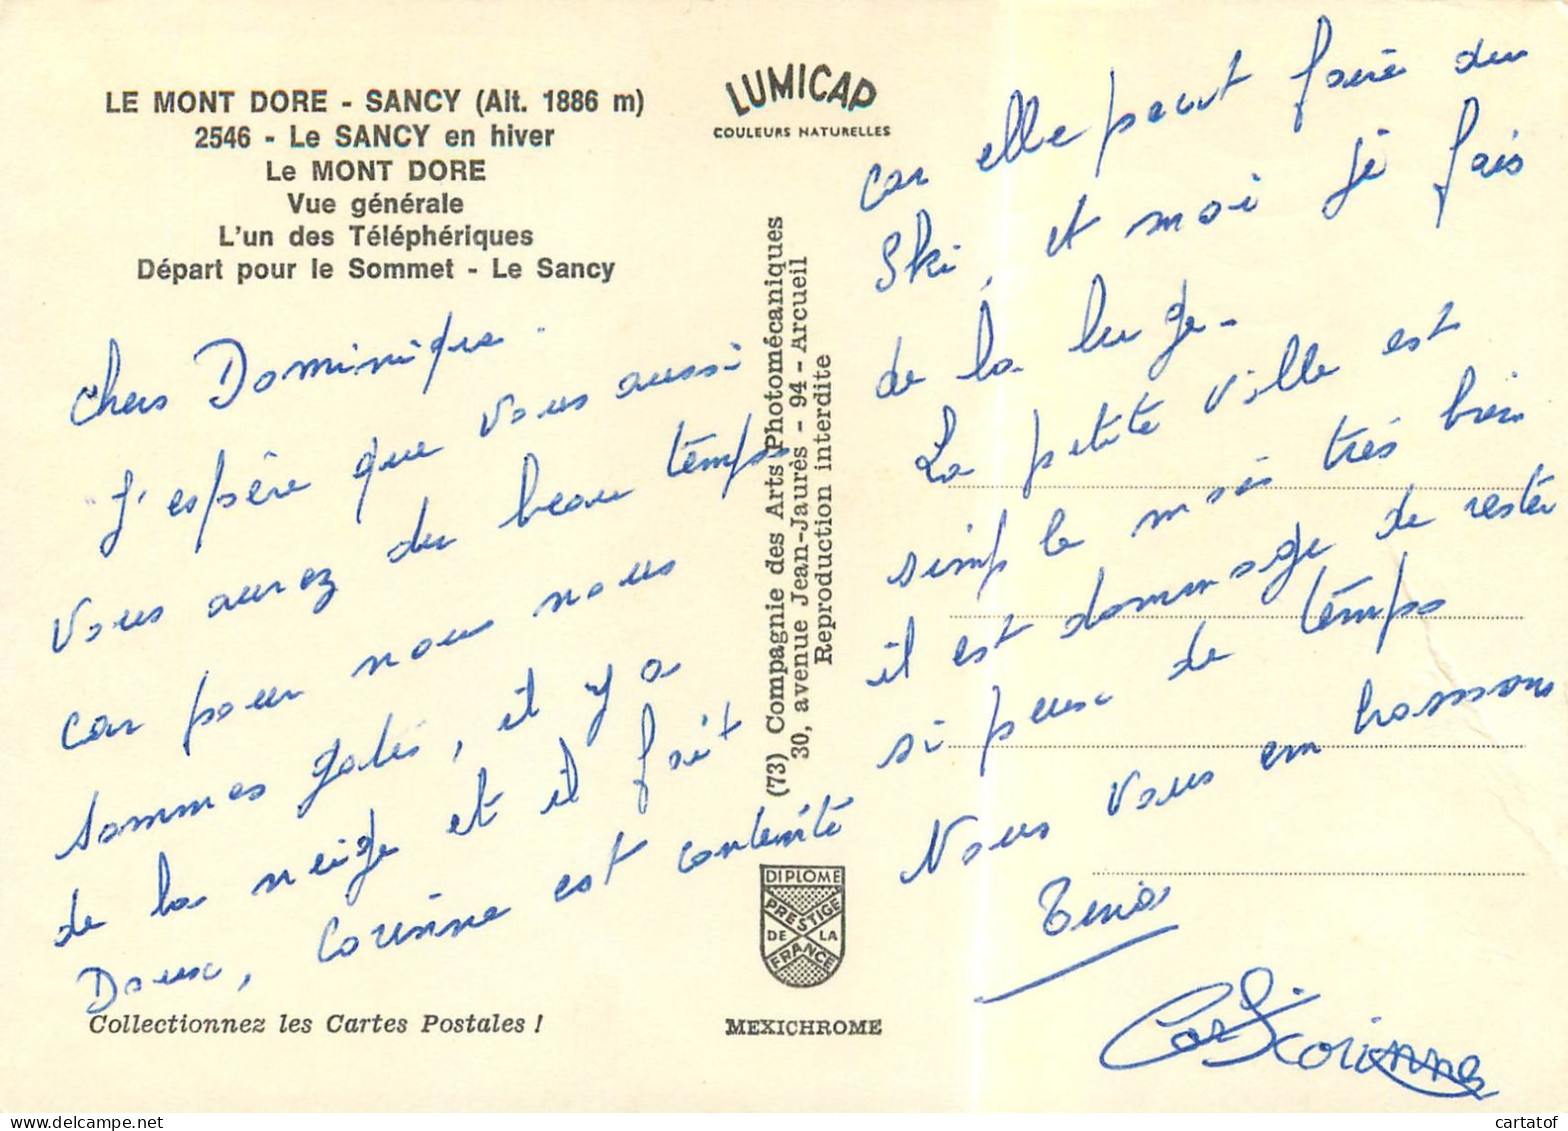 LE MONT DORE - SANCY (Alt. 1886 m)
2546 - Le SANCY en hiver
Le MONT DORE
Vue générale
L'un des Téléphériques
Départ pour le Sommet - Le Sancy
chers Dominique.
J'espère que vous aussi
vous aurez du beau temps
car pour nous nous
sommes gatés, il y a
de la neige et il fait
Doux, Corinne est contente
Collectionnez les Cartes Postales !
LUMICAP
COULEURS NATURELLES
(73) Compagnie des Arts Photomécaniques
30, avenue Jean-Jaurès - 94 - Arcueil
Reproduction interdite
DIPLOME
PRESTIGE
DE LA
FRANCE
MEXICHROME
car elle peut faire du
Ski, et moi je fais
de la luge.
La petite ville est
simple mais très bien
il est dommage de rester
si peux de temps
Nous vous embrassons
Corinne
cartatof